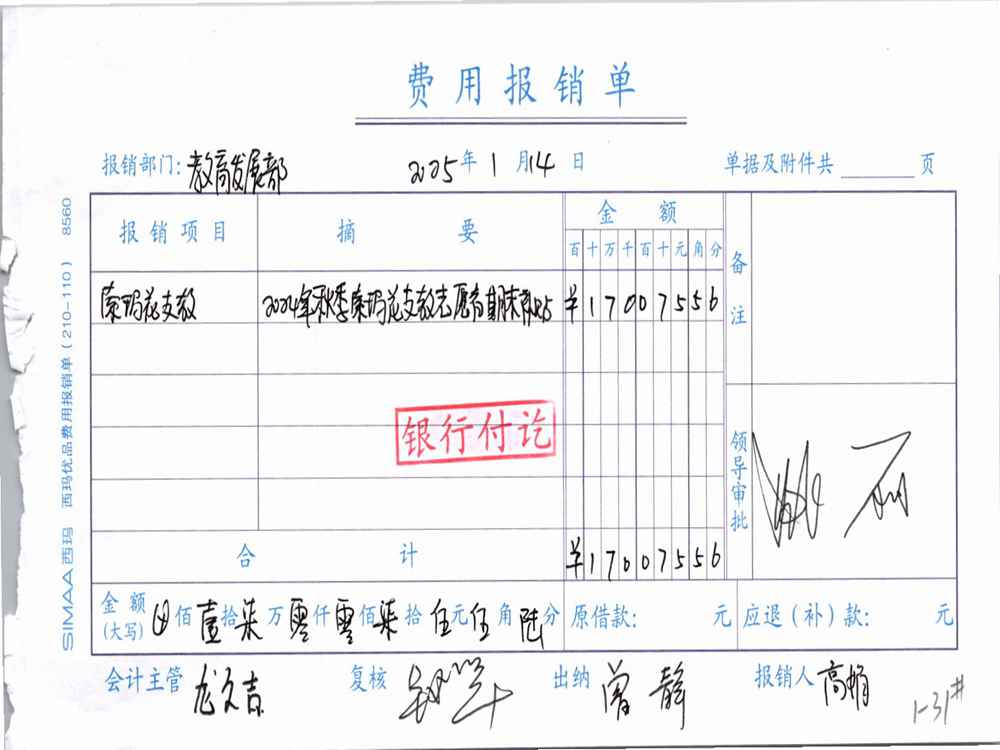 费用报销单
报销部门:教育发展部 2025年1月14日 单据及附件共 页
报销项目 摘要 金额 备注
百十万千百十元角分
索玛花支教 2024年秋季索玛花支教志愿者期末 ¥17007556
银行付讫
领导审批
合计 ¥17007556
金额(大写) ⊗佰壹拾柒万零仟零佰柒拾伍元伍角陆分 原借款: 元 应退(补)款: 元
会计主管 龙久吉 复核 出纳 曾静 报销人 高娟
1-31#
SIMAA西玛 西玛优品费用报销单(210-110) 8560